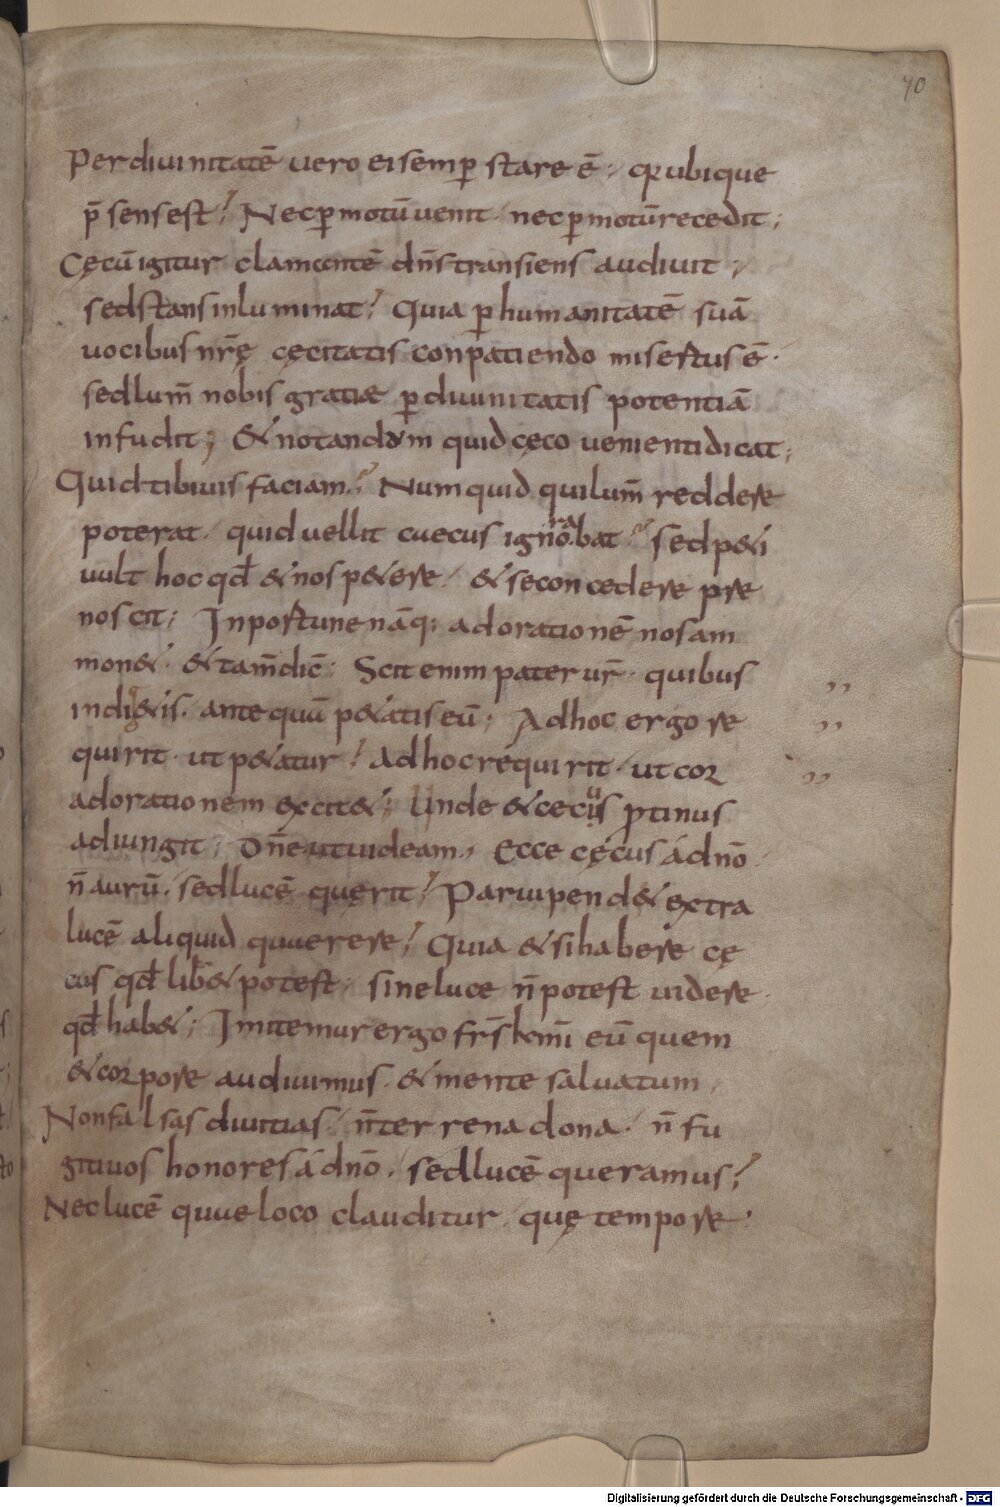 70
Per divinitatē vero ei semꝑ stare ē· qr ubique
p̄sens est! Nec ꝑ motū venit· nec ꝑ motū recedit;
Cęcū igitur clamantē dn̄s transiens audivit;
sed stans inluminat! Quia ꝑ humanitatē suā
vocibus nr̄ę cęcitatis conpatiendo misertus ē·
sed lum̄ nobis gratiae ꝑ divinitatis potentiā
infudit; & notandum quid cęco venienti dicat;
Quid tibi vis faciam? Numquid qui lum̄ reddere
poterat· quid vellit caecus ignorabat? sed p&i
vult hoc qđ & nos p&ere· & se concedere pre
noscit; Inportune nāq; ad orationē nos am
mon&· & tam̄ dic̄· Scit enim pater vr̄· quibus
indig&is· ante quū p&atis eū; Ad hoc ergo re
quirit· ut p&atur! ad hoc requirit· ut cor
ad orationem excit&; Unde & cecus protinus
adiungit; Dn̄e ut videam; Ecce cęcus á dnō
n̄ aurū· sed lucē quęrit! Parvipend& extra
lucē aliquid quaerere! Quia & si habere cę
cus qđ lib& potest· sine luce n̄ potest videre·
qđ hab&; Imitemur ergo fr̄s kmī eū quem
& corpore audivimus· & mente salvatum·
Non falsas divitias· n̄ terrena dona· n̄ fu
gitivos honores á dnō· sed lucē queramus!
Nec lucē quae loco clauditur· quę tempore·
Digitalisierung gefördert durch die Deutsche Forschungsgemeinschaft - DFG